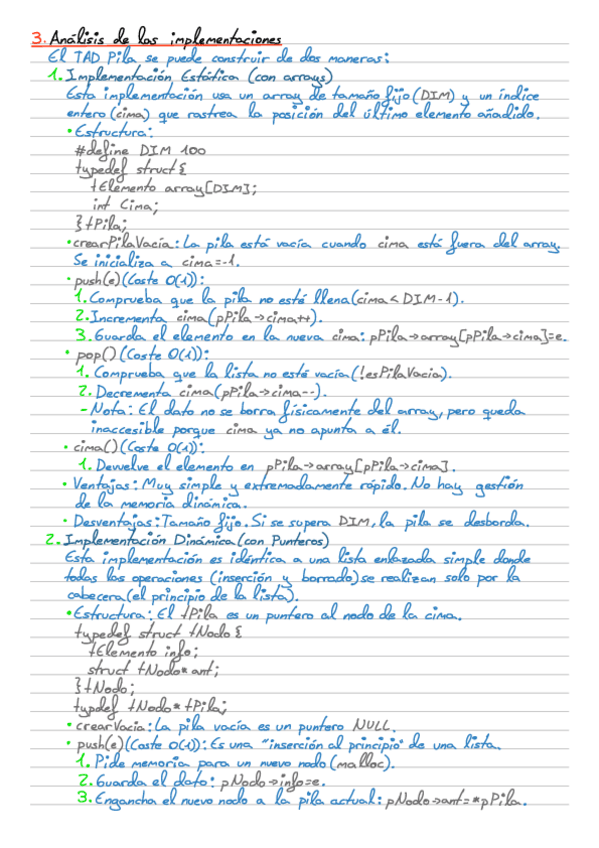 3. Análisis de las implementaciones
El TAD Pila se puede construir de dos maneras:
1. Implementación Estática (con arrays)
Esta implementación usa un array de tamaño fijo (DIM) y un índice
entero (cima) que rastrea la posición del último elemento añadido.
• Estructura:
#define DIM 100
typedef struct {
tElemento array[DIM];
int Cima;
} tPila;
• crearPilaVacía: La pila está vacía cuando cima está fuera del array.
Se inicializa a cima=-1.
• push(e) (Coste O(1)):
1. Comprueba que la pila no esté llena (cima < DIM-1).
2. Incrementa cima (pPila->cima++).
3. Guarda el elemento en la nueva cima: pPila->array[pPila->cima]=e.
• pop() (Coste O(1)):
1. Comprueba que la lista no esté vacía (!esPilaVacia).
2. Decrementa cima (pPila->cima--).
- Nota: El dato no se borra físicamente del array, pero queda
inaccesible porque cima ya no apunta a él.
• cima() (Coste O(1)):
1. Devuelve el elemento en pPila->array[pPila->cima].
• Ventajas: Muy simple y extremadamente rápido. No hay gestión
de la memoria dinámica.
• Desventajas: Tamaño fijo. Si se supera DIM, la pila se desborda.
2. Implementación Dinámica (con Punteros)
Esta implementación es idéntica a una lista enlazada simple donde
todas las operaciones (inserción y borrado) se realizan solo por la
cabecera (el principio de la lista).
• Estructura: El tPila es un puntero al nodo de la cima.
typedef struct tNodo {
tElemento info;
struct tNodo* ant;
} tNodo;
typdef tNodo* tPila;
• crearVacia: La pila vacía es un puntero NULL.
• push(e) (Coste O(1)): Es una "inserción al principio" de una lista.
1. Pide memoria para un nuevo nodo (malloc).
2. Guarda el dato: pNodo->info=e.
3. Engancha el nuevo nodo a la pila actual: pNodo->ant=*pPila.